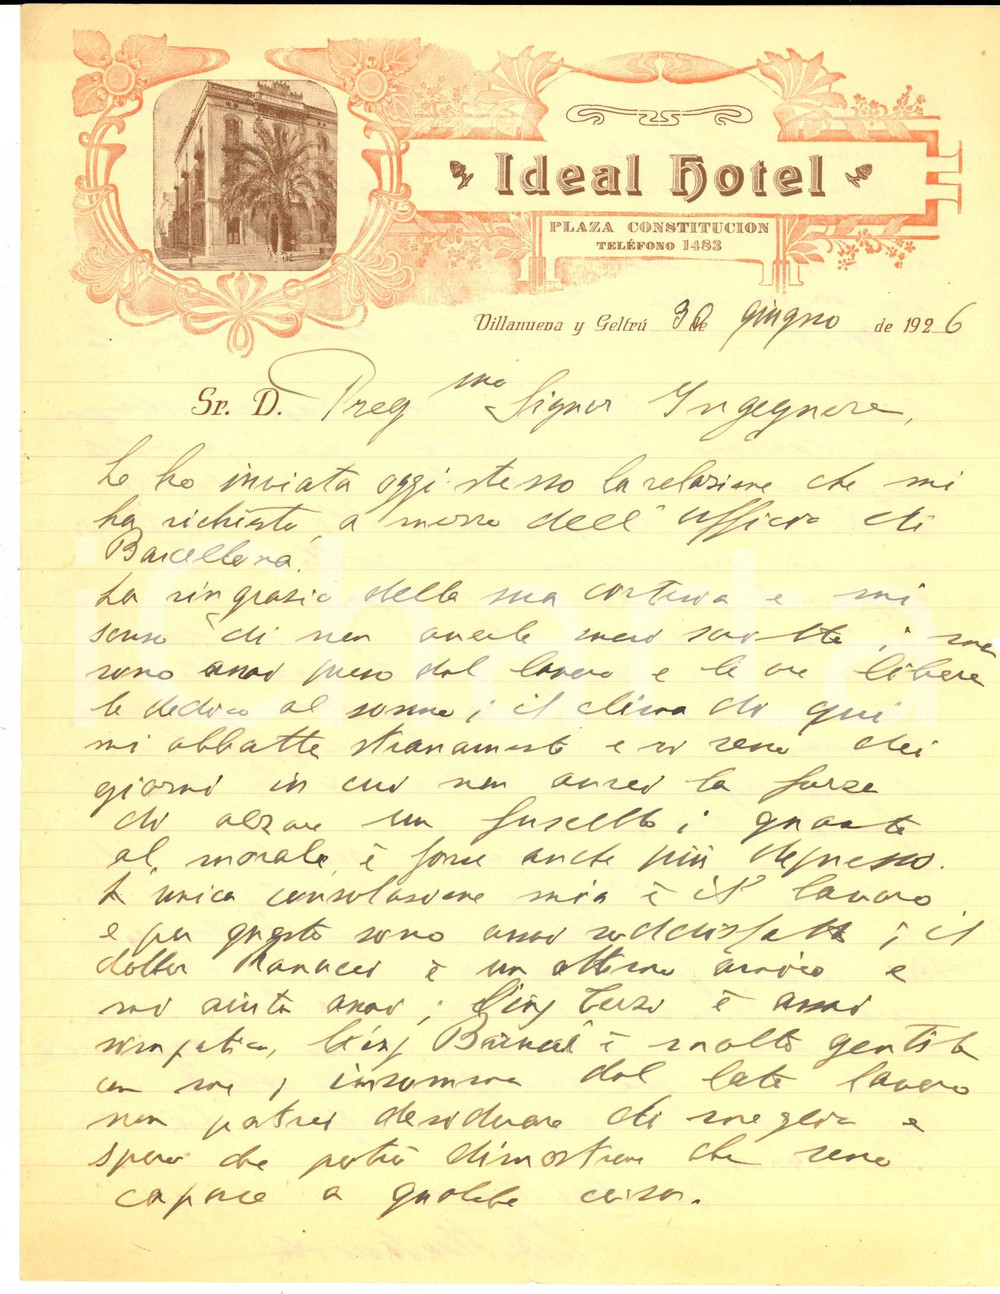 Ideal Hotel
PLAZA CONSTITUCION
TELÉFONO 1483
Villanueva y Geltrú 30 de giugno de 1926
Sr. D. Preg mo Signor Ingegnere,
Le ho inviata oggi stesso la relazione che mi
ha richiesta, a mezzo dell'Ufficio di
Barcellona.
La ringrazio della sua cortesia e mi
scuso di non averle mai scritto; ma
sono assai preso dal lavoro e le ore libere
le dedico al sonno; il clima di qui
mi abbatte stranamente e vi sono dei
giorni in cui non avrei la forza
di alzare un fuscello; quanto
al morale, è forse anche più depresso.
L'unica consolazione mia è il lavoro
e per questo sono assai soddisfatto; il
dottor è un ottimo amico e
mi aiuta assai; l'ing Terzi è assai
simpatico, l'ing è molto gentile
con me; insomma dal lato lavoro
non potrei desiderare di meglio e
spero che potrò dimostrare che sono
capace a qualche cosa.